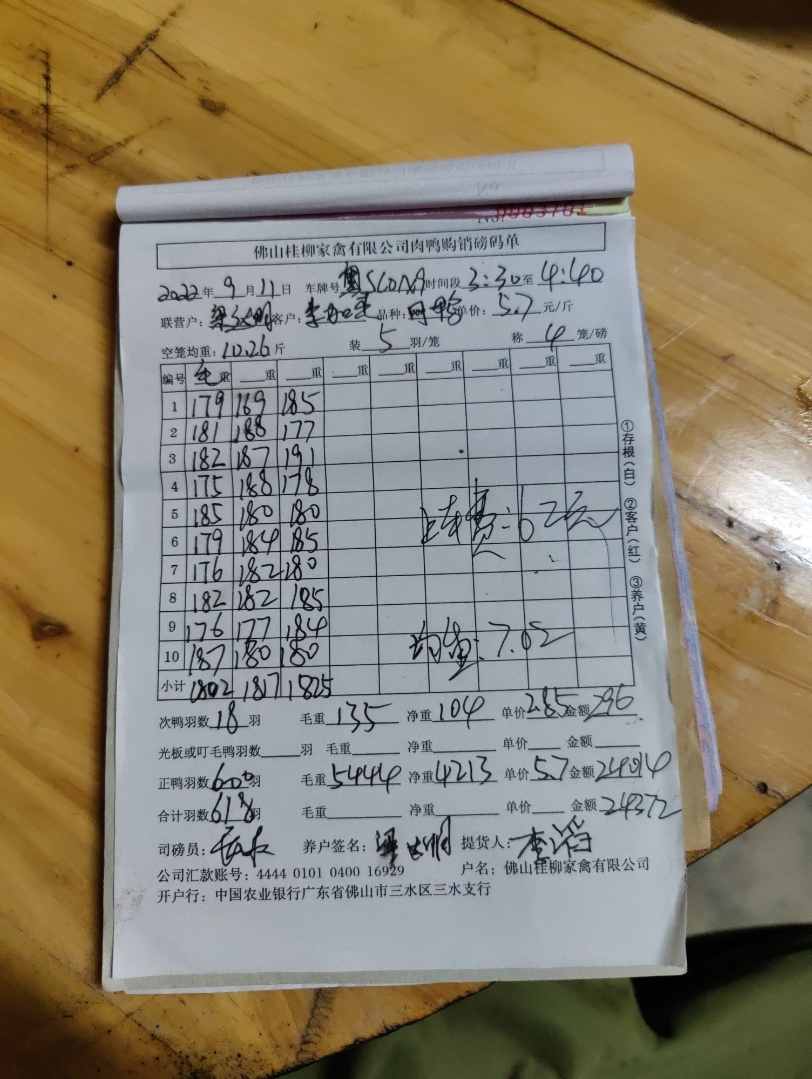 0003701
佛山桂柳家禽有限公司肉鸭购销磅码单
2022年9月11日 车牌号 时间段3:30至4:40
联营户: 客户: 品种: 单价:5.7元/斤
空笼均重:10.26斤 装5羽/笼 称4笼/磅
编号 毛重 重 重 重 重 重 重 重 重
1 179 169 185
2 181 188 177
3 182 187 191
4 175 188 178
5 185 180 180
上车费:62元
6 179 184 185
7 176 182 180
8 182 182 185
9 176 177 184
均重:7.02
10 187 180 180
小计 1802 1817 1825
①存根(白) ②客户(红) ③养户(黄)
次鸭羽数18羽 毛重135 净重104 单价2.85金额296
光板或叮毛鸭羽数 羽 毛重 净重 单价 金额
正鸭羽数600羽 毛重5444 净重4213 单价5.7金额24014
合计羽数618羽 毛重 净重 单价 金额24372
司磅员: 养户签名: 提货人:李滔
公司汇款账号:4444 0101 0400 16929 户名:佛山桂柳家禽有限公司
开户行:中国农业银行广东省佛山市三水区三水支行